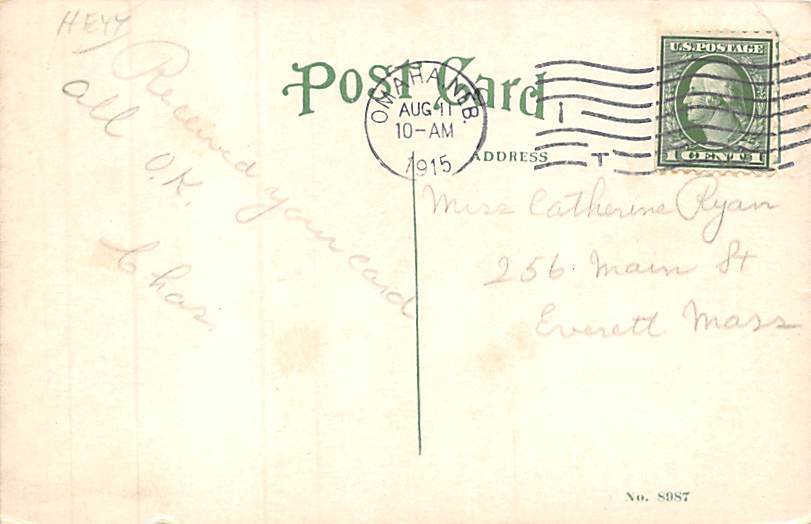 HEYY
Received your card
all O.K.
Chas.
POST CARD
OMAHA, NEB.
AUG 11
10-AM
1915
1
T
U.S. POSTAGE
1 CENT 1
ADDRESS
Miss Catherine Ryan
256. Main St
Everett Mass.
No. 8987